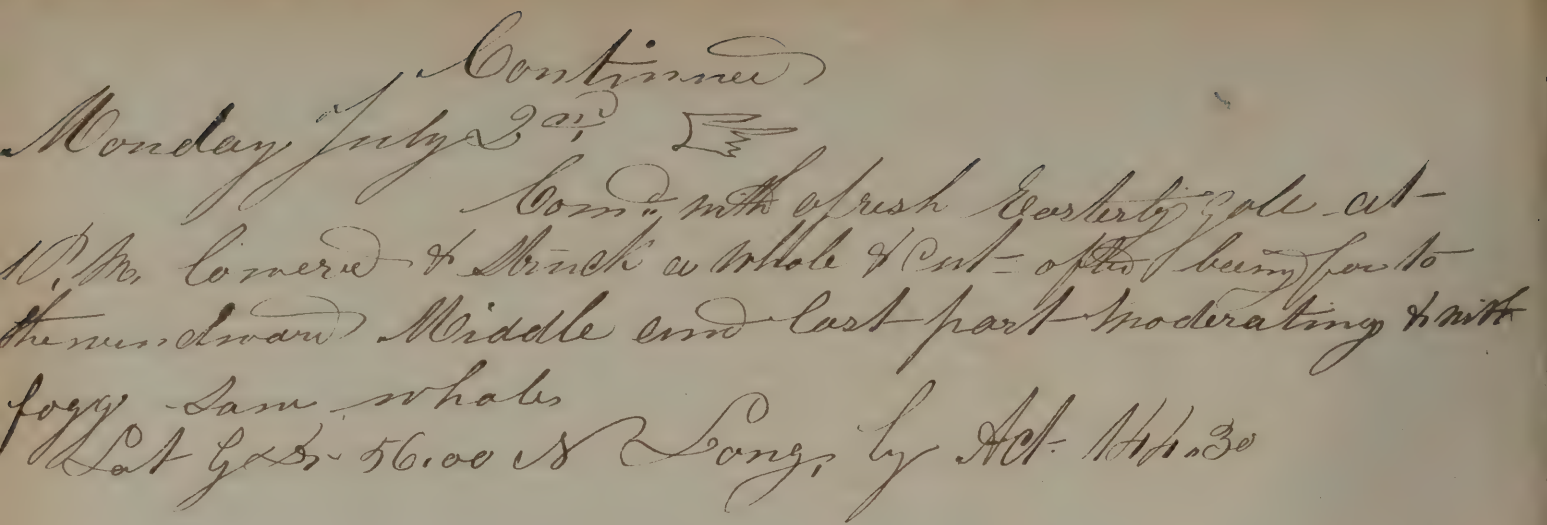 Continued
Monday July 2nd
Comd. with a fresh Easterly gale at
1 P.M. lowered & Struck a Whale & Cut being far to
the windward Middle and last part moderating & with
fogg saw whales
Lat 56.00 N Long, by Act. 144.30